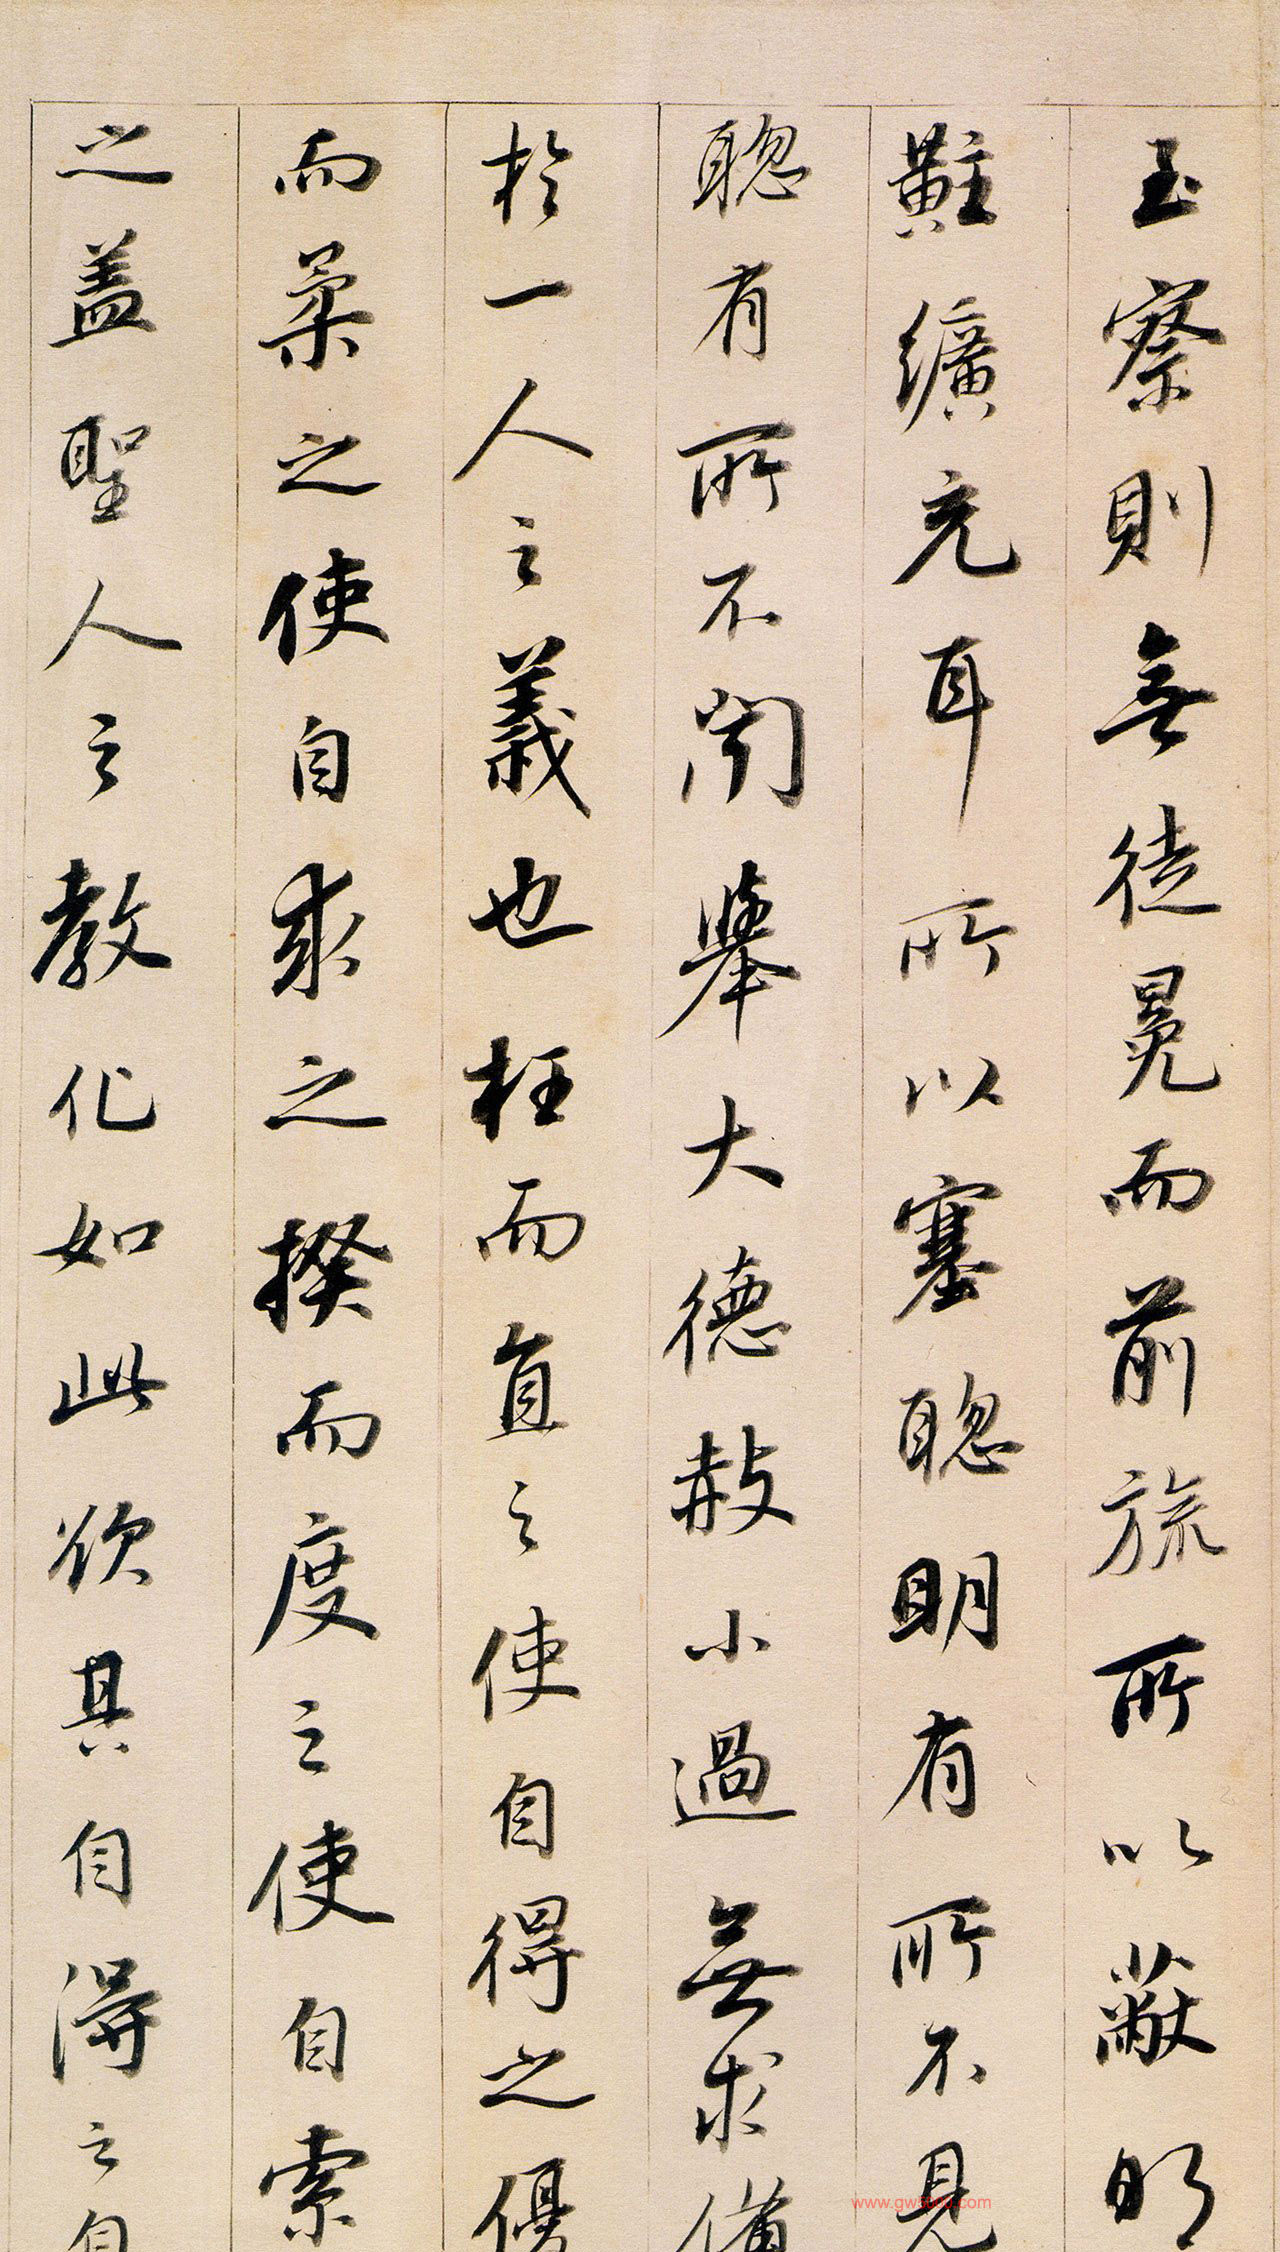 至察則無徒冕而前旒所以蔽明
黈纊充耳所以塞聰明有所不見
聰有所不聞舉大德赦小過無求備
於一人之義也枉而直之使自得之優
而柔之使自求之揆而度之使自索
之蓋聖人之教化如此欲其自得之自
www.gw3000.com